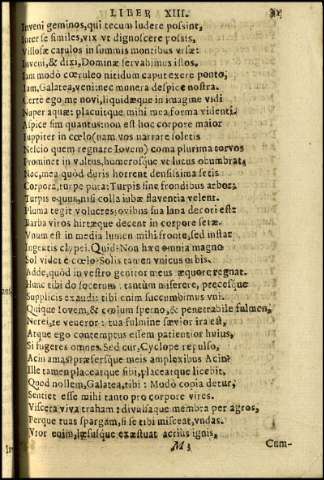 LIBER XIII.
Inveni geminos, qui tecum ludere possint,
Inter se similes, vix ut dignoscere possis,
Villosæ catulos in summis montibus ursæ:
Inveni, & dixi, Dominæ servabimus istos.
Iam modò cœruleo nitidum caput exere ponto,
Iam, Galatea, veni: nec munera despice nostra.
Certe ego me novi, liquidæque in imagine vidi
Nuper aquæ: placuitque mihi mea forma videnti.
Aspice sim quantus: non est hoc corpore maior
Iuppiter in cœlo (nam vos narrare soletis
Nescio quem regnare Iovem) coma plurima torvos
Prominet in vultus, humerosque ut lucus obumbrat.
Nec, mea quòd duris horrent densissima setis
Corpora, turpe puta: Turpis sine frondibus arbor:
Turpis equus, nisi colla iubæ flaventia velent.
Pluma tegit volucres: ovibus sua lana decori est:
Barba viros hirtæque decent in corpore setæ.
Vnum est in media lumen mihi fronte, sed instar
Ingentis clypei. Quid? Non hæc omnia magno
Sol videt è cœlo? Solis tamen unicus orbis.
Adde, quòd in vestro genitor meus æquore regnat.
Hunc tibi do socerum: tantùm miserere, precesque
Supplicis exaudi: tibi enim succumbimus uni.
Quique Iovem, & cœlum sperno, & penetrabile fulmen,
Nerei, te veneror: tua fulmine sævior ira est,
Atque ego contemptus essem patientior huius,
Si fugeres omnes. Sed cur, Cyclope repulso,
Acin amas? præfersque meis amplexibus Acin?
Ille tamen placeatque sibi, placeatque licebit,
Quod nollem, Galatea, tibi: Modò copia detur,
Sentiet esse mihi tanto pro corpore vires.
Viscera viva traham: divulsaque membra per agros,
Perque tuas spargam, si se tibi misceat, undas.
Vror enim, læsusque exæstuat acrius ignis,
M 3
Cum-